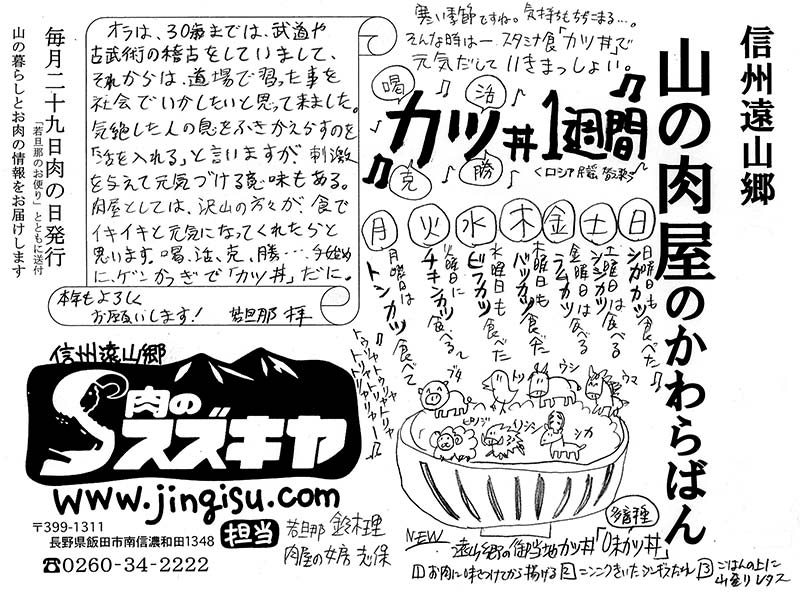 信州遠山郷
山の肉屋のかわらばん
寒い季節ですね。気持ちもちぢこまる…。
そんな時は一スタミナ食「カツ丼」で
元気だして いきまっしょい。
喝
活
カツ丼1週間
克
勝
<ロシア民謡
日
土
金
木
水
火
月
日曜日も
シカカツ 食べた
土曜日は
シシカツ 食べる
金曜日は
ラムカツ 食べる
木曜日も
バッカツ 食べた
水曜日も
ビフカツ 食べた
火曜日に
チキンカツ 食べる〜
月曜日は
トンカツ 食べて
トゥリャトゥリャ
ブタ
トリ
ウシ
ウマ
ヒツジ
イノシシ
シカ
多音種
NEW 遠山郷の御当地カツ丼「味カツ丼」
1 お肉に味をつけてから揚げる 2 ニンニクきいたジンギスだれ 3 ごはんの上に
山盛りレタス
オラは、30歳までは、武道や
古武術の稽古をしていまして、
それからは、道場で習った事を
社会でいかしたいと思って来ました。
気絶した人の息をふきかえらすのを
「活を入れる」と言いますが、刺激
を与えて元気づける意味もある。
肉屋としては、沢山の方々が、食で
イキイキと元気になってくれたらと
思います。喝、活、克、勝…手始め
に、ゲンかつぎで「カツ丼」だに。
本年もよろしく
お願いします! 若旦那 拝
毎月二十九日肉の日発行
「若旦那のお便り」とともに送付
山の暮らしとお肉の情報をお届けします
信州遠山郷
肉の
スズキヤ
www.jingisu.com
〒399-1311
長野県飯田市南信濃和田1348
☎0260-34-2222
担当
若旦那 鈴木理
肉屋の女房 志保